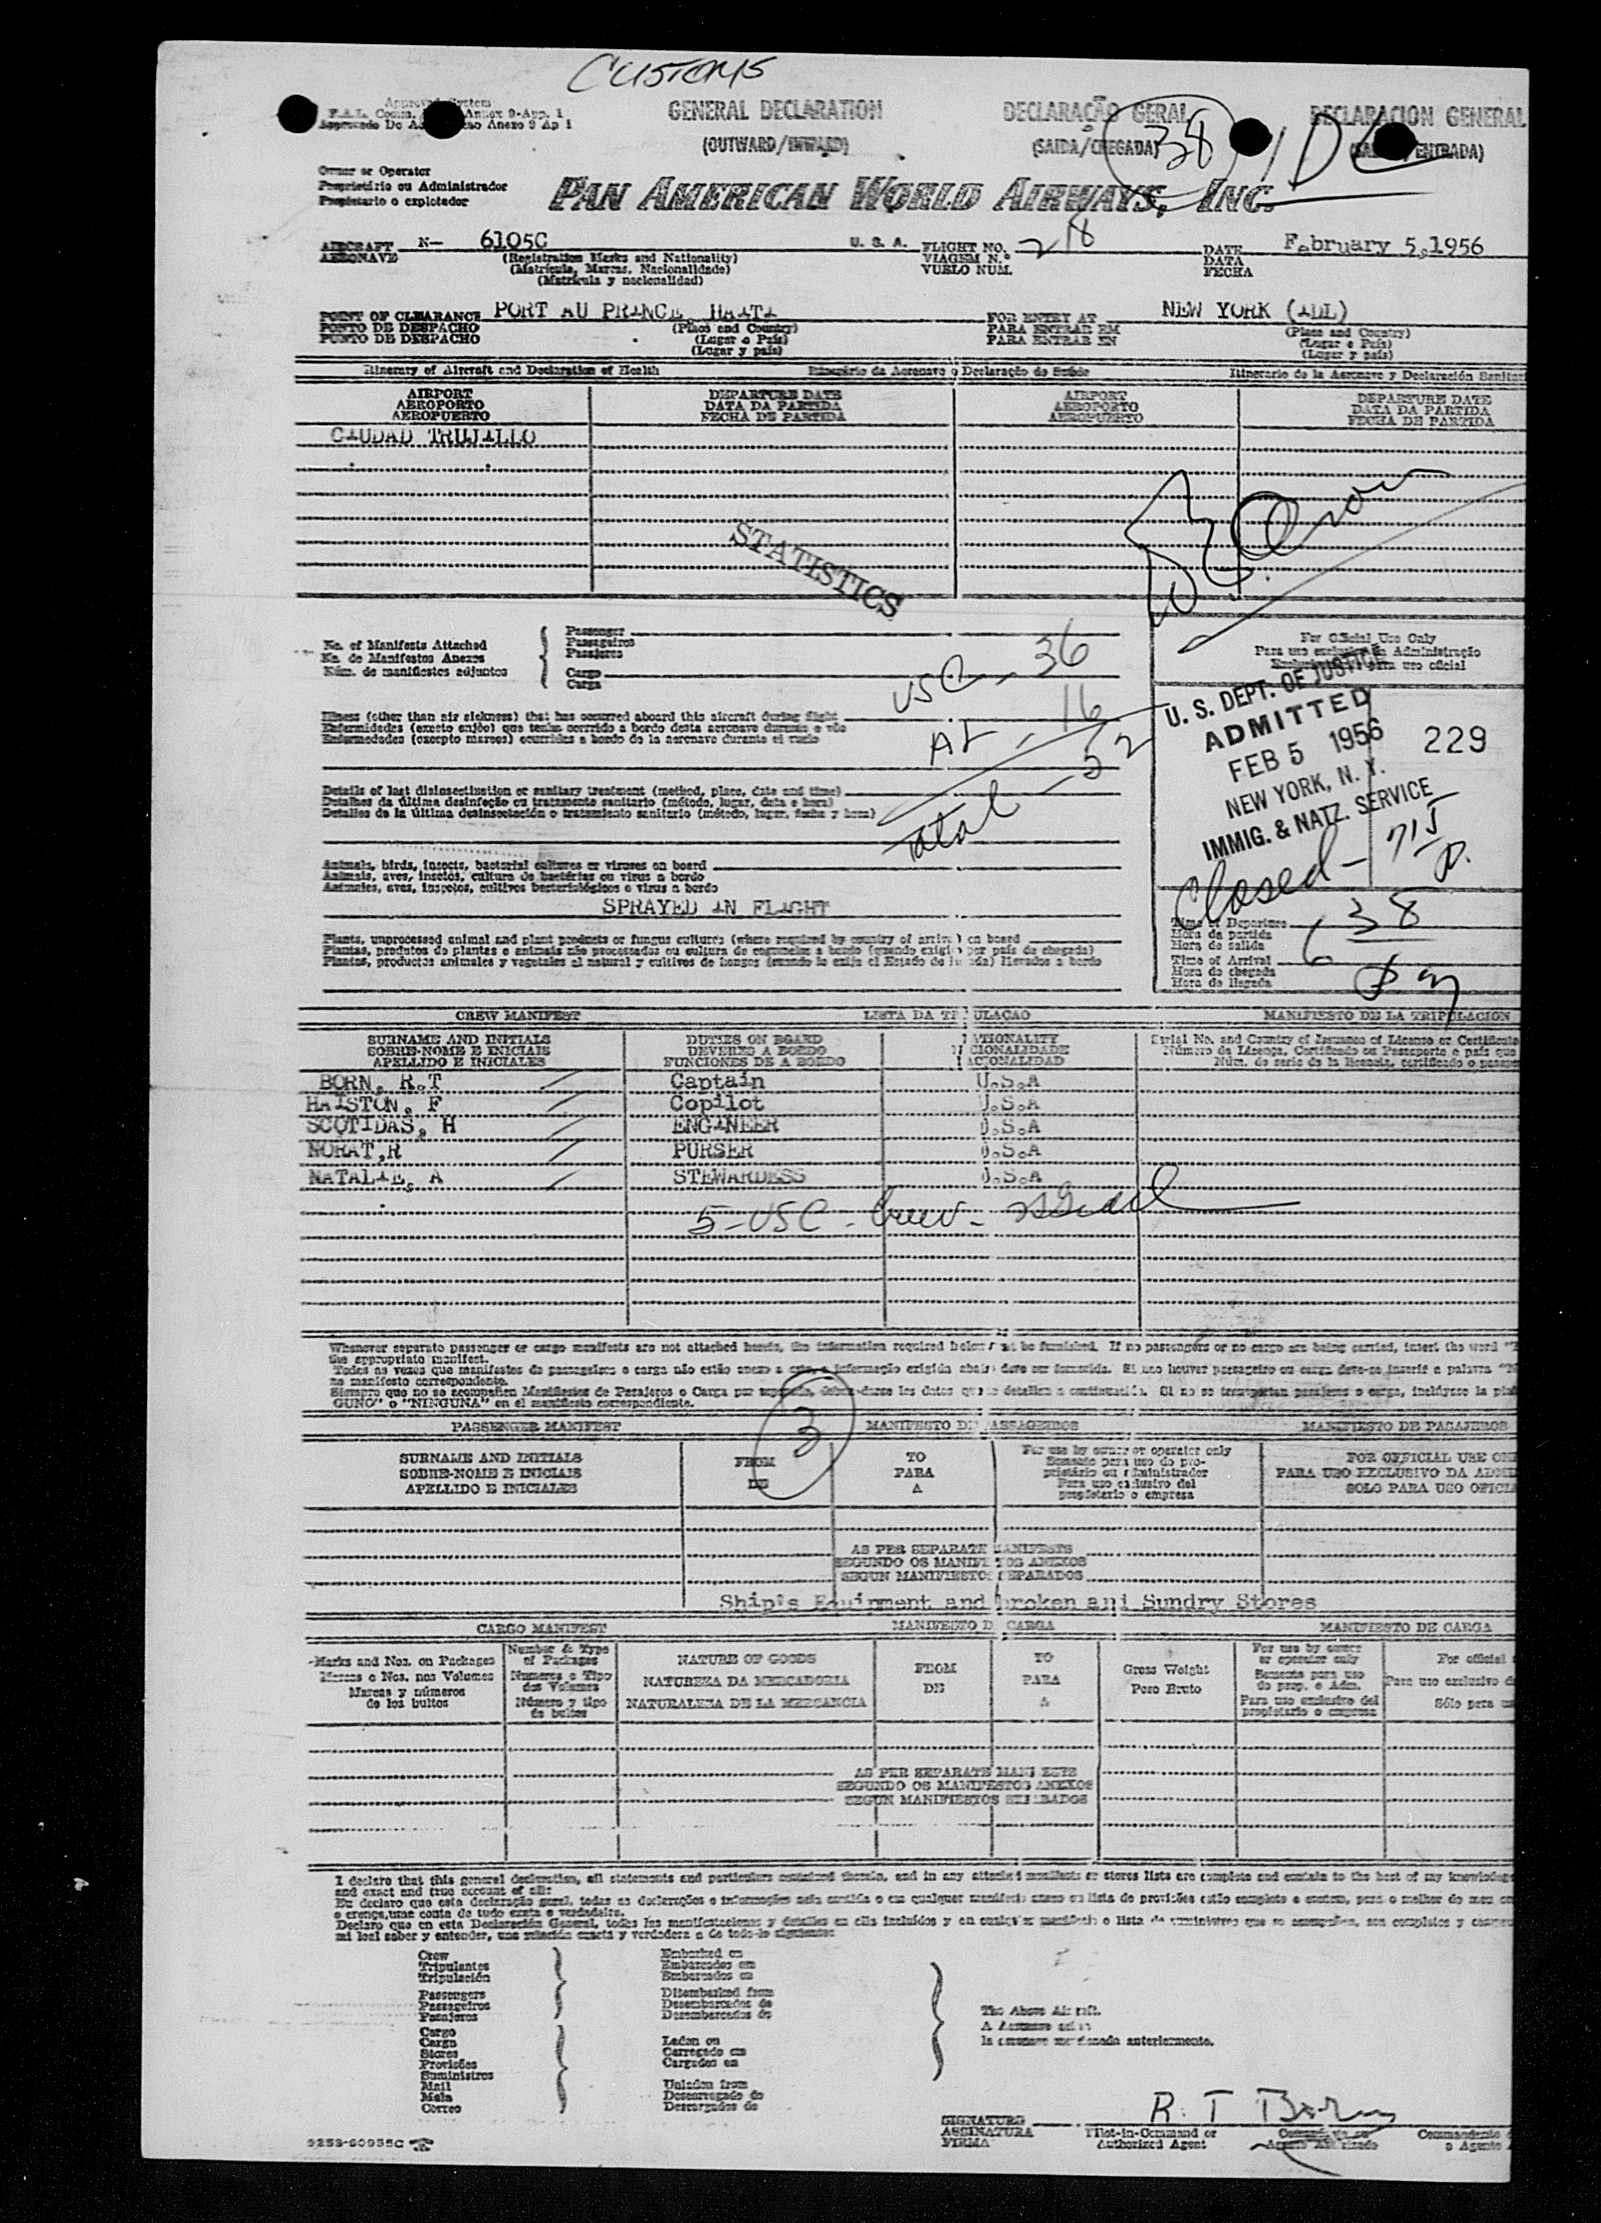 CUSTOMS
GENERAL DECLARATION
DECLARAÇÃO GERAL
DECLARACION GENERAL
(OUTWARD/INWARD)
(SAIDA/CHEGADA)
ENTRADA)
38
Owner or Operator
Proprietário ou Administrador
Propietario o explotador
PAN AMERICAN WORLD AIRWAYS, INC.
AIRCRAFT N— 6105C U. S. A.
AERONAVE
(Registration Marks and Nationality)
(Matrícula, Marcas, Nacionalidade)
(Matrícula y nacionalidad)
FLIGHT NO. 218
VIAGEM N.º
VUELO NUM.
DATE February 5, 1956
DATA
FECHA
POINT OF CLEARANCE PORT AU PRINCE, HAITI
PONTO DE DESPACHO
PUNTO DE DESPACHO
(Place and Country)
(Lugar e País)
(Lugar y país)
FOR ENTRY AT NEW YORK (IDL)
PARA ENTRAR EM
PARA ENTRAR EN
(Place and Country)
(Lugar e País)
(Lugar y país)
Itinerary of Aircraft and Declaration of Health
Itinerário da Aeronave e Declaração de Saúde
Itinerario de la Aeronave y Declaración Sanitar
AIRPORT
AEROPORTO
AEROPUERTO
DEPARTURE DATE
DATA DA PARTIDA
FECHA DE PARTIDA
AIRPORT
AEROPORTO
AEROPUERTO
DEPARTURE DATE
DATA DA PARTIDA
FECHA DE PARTIDA
CIUDAD TRUJILLO
STATISTICS
No. of Manifests Attached
No. de Manifestos Anexos
Núm. de manifiestos adjuntos
Passenger
Passageiros
Pasajeros
Cargo
Carga
USC - 36
AL - 16
Total - 52
For Official Use Only
Para uso exclusivo da Administração
para uso oficial
U. S. DEPT. OF JUSTICE
ADMITTED
FEB 5 1956
229
NEW YORK, N. Y.
IMMIG. & NATZ. SERVICE
Closed - 715
Illness (other than air sickness) that has occurred aboard this aircraft during flight
Enfermidades (exceto enjôo) que tenha ocorrido a bordo desta aeronave durante o vôo
Enfermedades (excepto mareos) ocurridas a bordo de la aeronave durante el vuelo
Details of last disinsectization or sanitary treatment (method, place, date and time)
Detalhes da última desinfeção ou tratamento sanitario (método, lugar, data e hora)
Detalles de la última desinsectación o tratamiento sanitario (método, lugar, fecha y hora)
Animals, birds, insects, bacterial cultures or viruses on board
Animais, aves, insetos, cultura de bactérias ou virus a bordo
Animales, aves, insectos, cultivos bacteriológicos o virus a bordo
SPRAYED IN FLIGHT
Plants, unprocessed animal and plant products or fungus cultures (where required by country of arrival) on board
Plantas, produtos de plantas e animais não processados ou cultura de cogumelos a bordo (quando exigido por país de chegada)
Plantas, productos animales y vegetales al natural y cultivos de hongos (cuando lo exija el Estado de llegada) llevados a bordo
Time of Departure
Hora da partida
Hora de salida
Time of Arrival
Hora da chegada
Hora de llegada
6 38
CREW MANIFEST
LISTA DA TRIPULAÇÃO
MANIFIESTO DE LA TRIPULACION
SURNAME AND INITIALS
SOBRE-NOME E INICIAIS
APELLIDO E INICIALES
DUTIES ON BOARD
DEVERES A BORDO
FUNCIONES DE A BORDO
NATIONALITY
NACIONALIDADE
NACIONALIDAD
Serial No. and Country of Issuance of License or Certificate
Número da Licença, Certificado ou Passaporte e país que
Núm. de serie de la licencia, certificado o pasapor
BORN, R.T Captain U.S.A
HAISTON, F Copilot U.S.A
SCOTIDAS, H ENGINEER U.S.A
NORAT,R PURSER U.S.A
NATALIE, A STEWARDESS U.S.A
5-USC - Crew -
Whenever separate passenger or cargo manifests are not attached hereto, the information required below must be furnished. If no passengers or no cargo are being carried, insert the word "
the appropriate manifest.
no manifesto correspondente.
GUNO" o "NINGUNA" en el manifiesto correspondiente.
3
PASSENGER MANIFEST
MANIFESTO DE PASSAGEIROS
MANIFIESTO DE PASAJEROS
SURNAME AND INITIALS
SOBRE-NOME E INICIAIS
APELLIDO E INICIALES
FROM
DE
TO
PARA
A
For use by owner or operator only
Somente para uso do pro-
prietário ou administrador
Para uso exclusivo del
propietario o empresa
FOR OFFICIAL USE ON
PARA USO EXCLUSIVO DA ADMI
SOLO PARA USO OFICIA
AS PER SEPARATE MANIFESTS
SEGUNDO OS MANIFESTOS ANEXOS
SEGUN MANIFIESTOS SEPARADOS
Ship's Equipment and broken and Sundry Stores
CARGO MANIFEST
MANIFESTO DE CARGA
MANIFIESTO DE CARGA
Marks and Nos. on Packages
Marcas e Nos. nos Volumes
Marcas y números
de los bultos
Number & Type
of Packages
Numeros e Tipo
dos Volumes
Número y tipo
de bultos
NATURE OF GOODS
NATUREZA DA MERCADORIA
NATURALEZA DE LA MERCANCIA
FROM
DE
TO
PARA
A
Gross Weight
Peso Bruto
For use by owner
or operator only
Somente para uso
do prop. e Adm.
Para uso exclusivo del
propietario o empresa
For official
Para uso exclusivo d
Sólo para us
AS PER SEPARATE MANIFESTS
SEGUNDO OS MANIFESTOS ANEXOS
SEGUN MANIFIESTOS SEPARADOS
I declare that this general declaration, all statements and particulars contained therein, and in any attached manifests or stores lists are complete and contain to the best of my knowledge
and exact and true account of all:
e crença, uma conta de tudo exata e verdadeira.
mi leal saber y entender, una relación exacta y verdadera a de todo lo siguiente:
Crew
Tripulantes
Tripulación
Passengers
Passageiros
Pasajeros
Cargo
Carga
Stores
Provisões
Suministros
Mail
Mala
Correo
Embarked on
Embarcados em
Embarcados en
Disembarked from
Desembarcados de
Desembarcados de
Laden on
Carregado em
Cargados en
Unladen from
Descarregado do
Descargados de
The Above Aircraft.
la aeronave mencionada anteriormente.
SIGNATURE R. T Born
ASSINATURA
FIRMA
Pilot-in-Command or
Authorized Agent